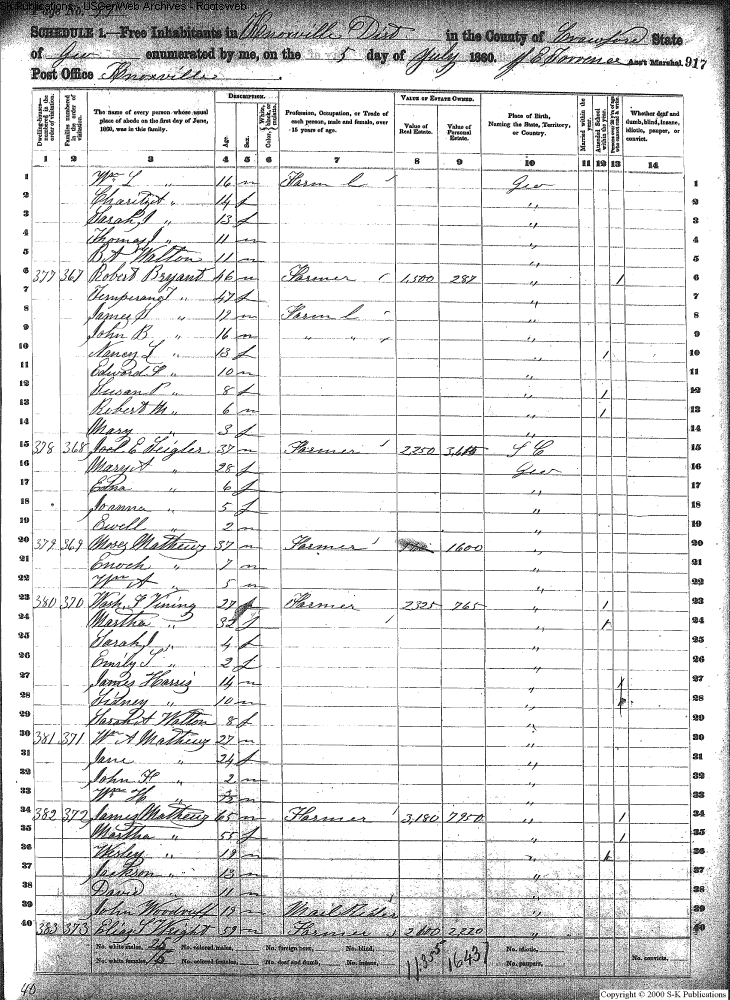 SK Publications - USGenWeb Archives - Rootsweb
Page No.
SCHEDULE 1.—Free Inhabitants in Knoxville Dist in the County of Crawford State
of Geo enumerated by me, on the 5 day of July 1860. Ass't Marshal. 917
Post Office Knoxville
Dwelling-houses— numbered in the order of visitation.
Families numbered in the order of visitation.
The name of every person whose usual place of abode on the first day of June, 1860, was in this family.
DESCRIPTION.
Age.
Sex.
Color, White, black, or mulatto.
Profession, Occupation, or Trade of each person, male and female, over 15 years of age.
VALUE OF ESTATE OWNED.
Value of Real Estate.
Value of Personal Estate.
Place of Birth, Naming the State, Territory, or Country.
Married within the year.
Attended School within the year.
Persons over 20 years of age who cannot read & write.
Whether deaf and dumb, blind, insane, idiotic, pauper, or convict.
1 2 3 4 5 6 7 8 9 10 11 12 13 14
1 Wm L " 16 m Farm L Geo 1
2 " 14 f " 2
3 Sarah J " 13 f " 3
4 Thomas J " 11 m " 4
5 Walton 11 m " 5
6 377 367 Robert Bryant 46 m Farmer 1,500 287 " 1 6
7 " 47 f " 7
8 James " 19 m Farm L " 8
9 John B " 16 m " " " 9
10 Nancy L " 13 f " 1 10
11 Edward " 10 m " 11
12 Susan P " 8 f " 1 12
13 Robert M " 6 m " 1 13
14 Mary " 3 f " 14
15 378 368 Joel E Zeigler 37 m Farmer 2,250 S C 15
16 Mary A " 28 f Geo 16
17 Edna " 6 f " 17
18 Joanna " 5 f " 18
19 Ewell " 2 m " 19
20 379 369 Moses Mathews 37 m Farmer 1600 " 20
21 Enoch " 7 m " 21
22 Wm A " 5 m " 22
23 380 370 Wash. F Vining 27 Farmer 2325 765 " 1 23
24 Martha " 32 f " 1 24
25 Sarah J " 4 f " 25
26 Emily S " 2 f " 26
27 James Harris 14 m " 1 27
28 Sidney " 10 m " 28
29 Sarah A Walton 8 f " 29
30 381 371 Wm A Mathews 27 m " 30
31 Jane " 24 f " 31
32 John F " 2 m " 32
33 Wm H " m " 33
34 382 372 James Mathews 65 m Farmer 3,180 7950 " 1 34
35 Martha " 55 f " 1 35
36 Wesley " 19 m " 36
37 Jackson " 13 m " 37
38 David " 11 m " 38
39 John Woodruff 19 m Mail Rider " 39
40 383 373 Elias Wright 59 m Farmer 2,600 2,220 " 40
No. white males, 25 No. colored males, No. foreign born, No. blind, 11,855 16431 No. idiotic,
No. white females, 15 No. colored females, No. deaf and dumb, No. insane, No. paupers, No. convicts,
40
Copyright © 2000 S-K Publications